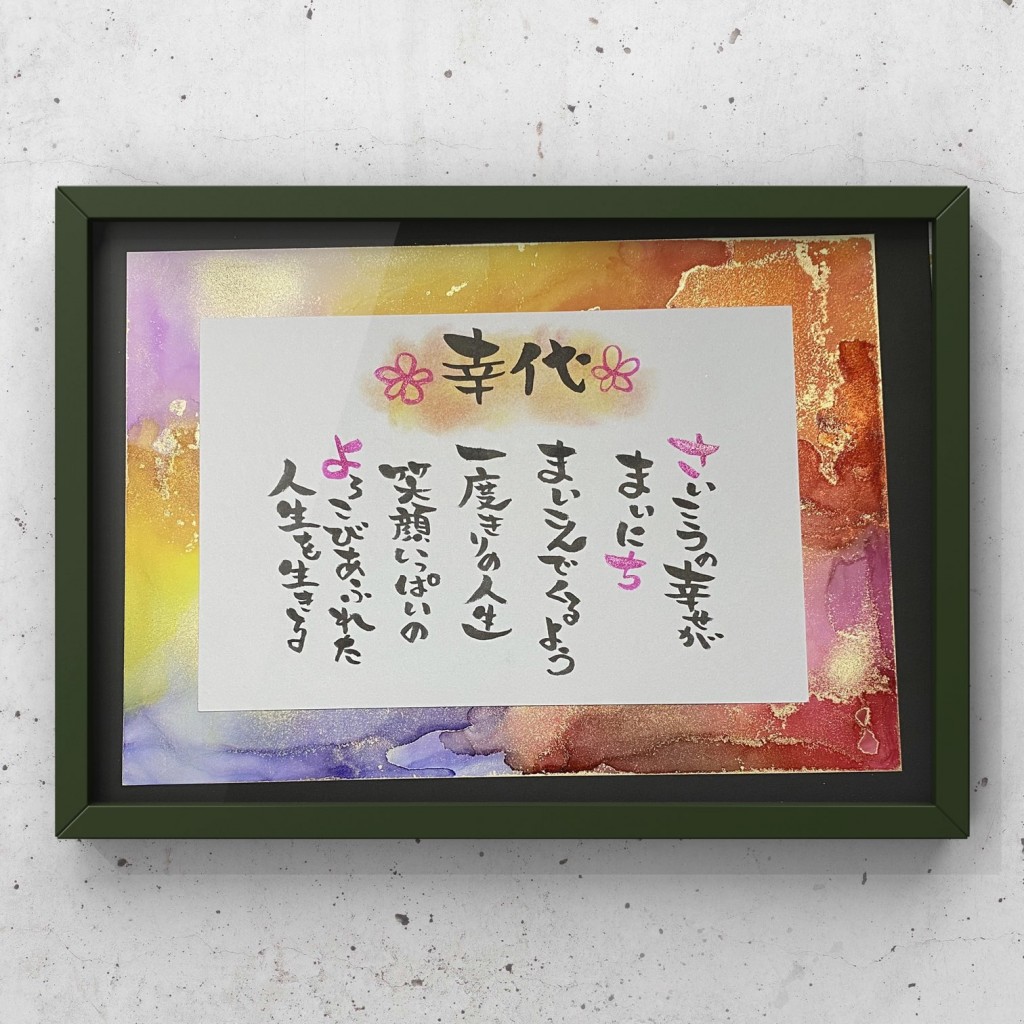 幸代
さいこうの幸せが
まいにち
まいこんでくるよう
一度きりの人生
笑顔いっぱいの
よろこびあふれた
人生を生きる